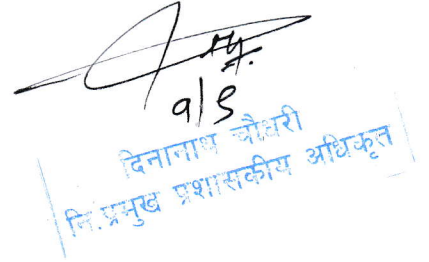 ९/९
दिनानाथ चौधरी
नि.प्रमुख प्रशासकीय अधिकृत